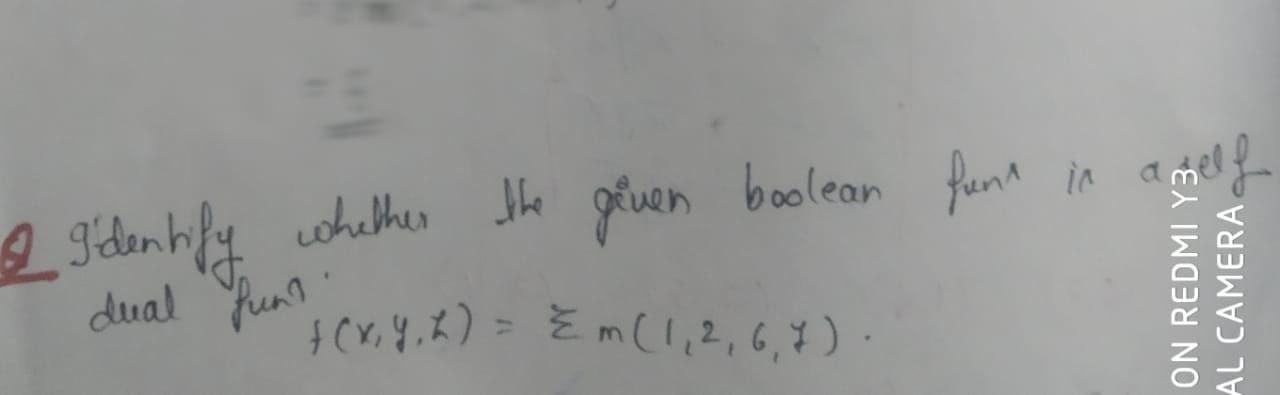 Q Identify whether the given boolean funⁿ is a self
dual funⁿ.
f(x,y,z) = Σ m(1,2,6,7).
ON REDMI Y3
AL CAMERA